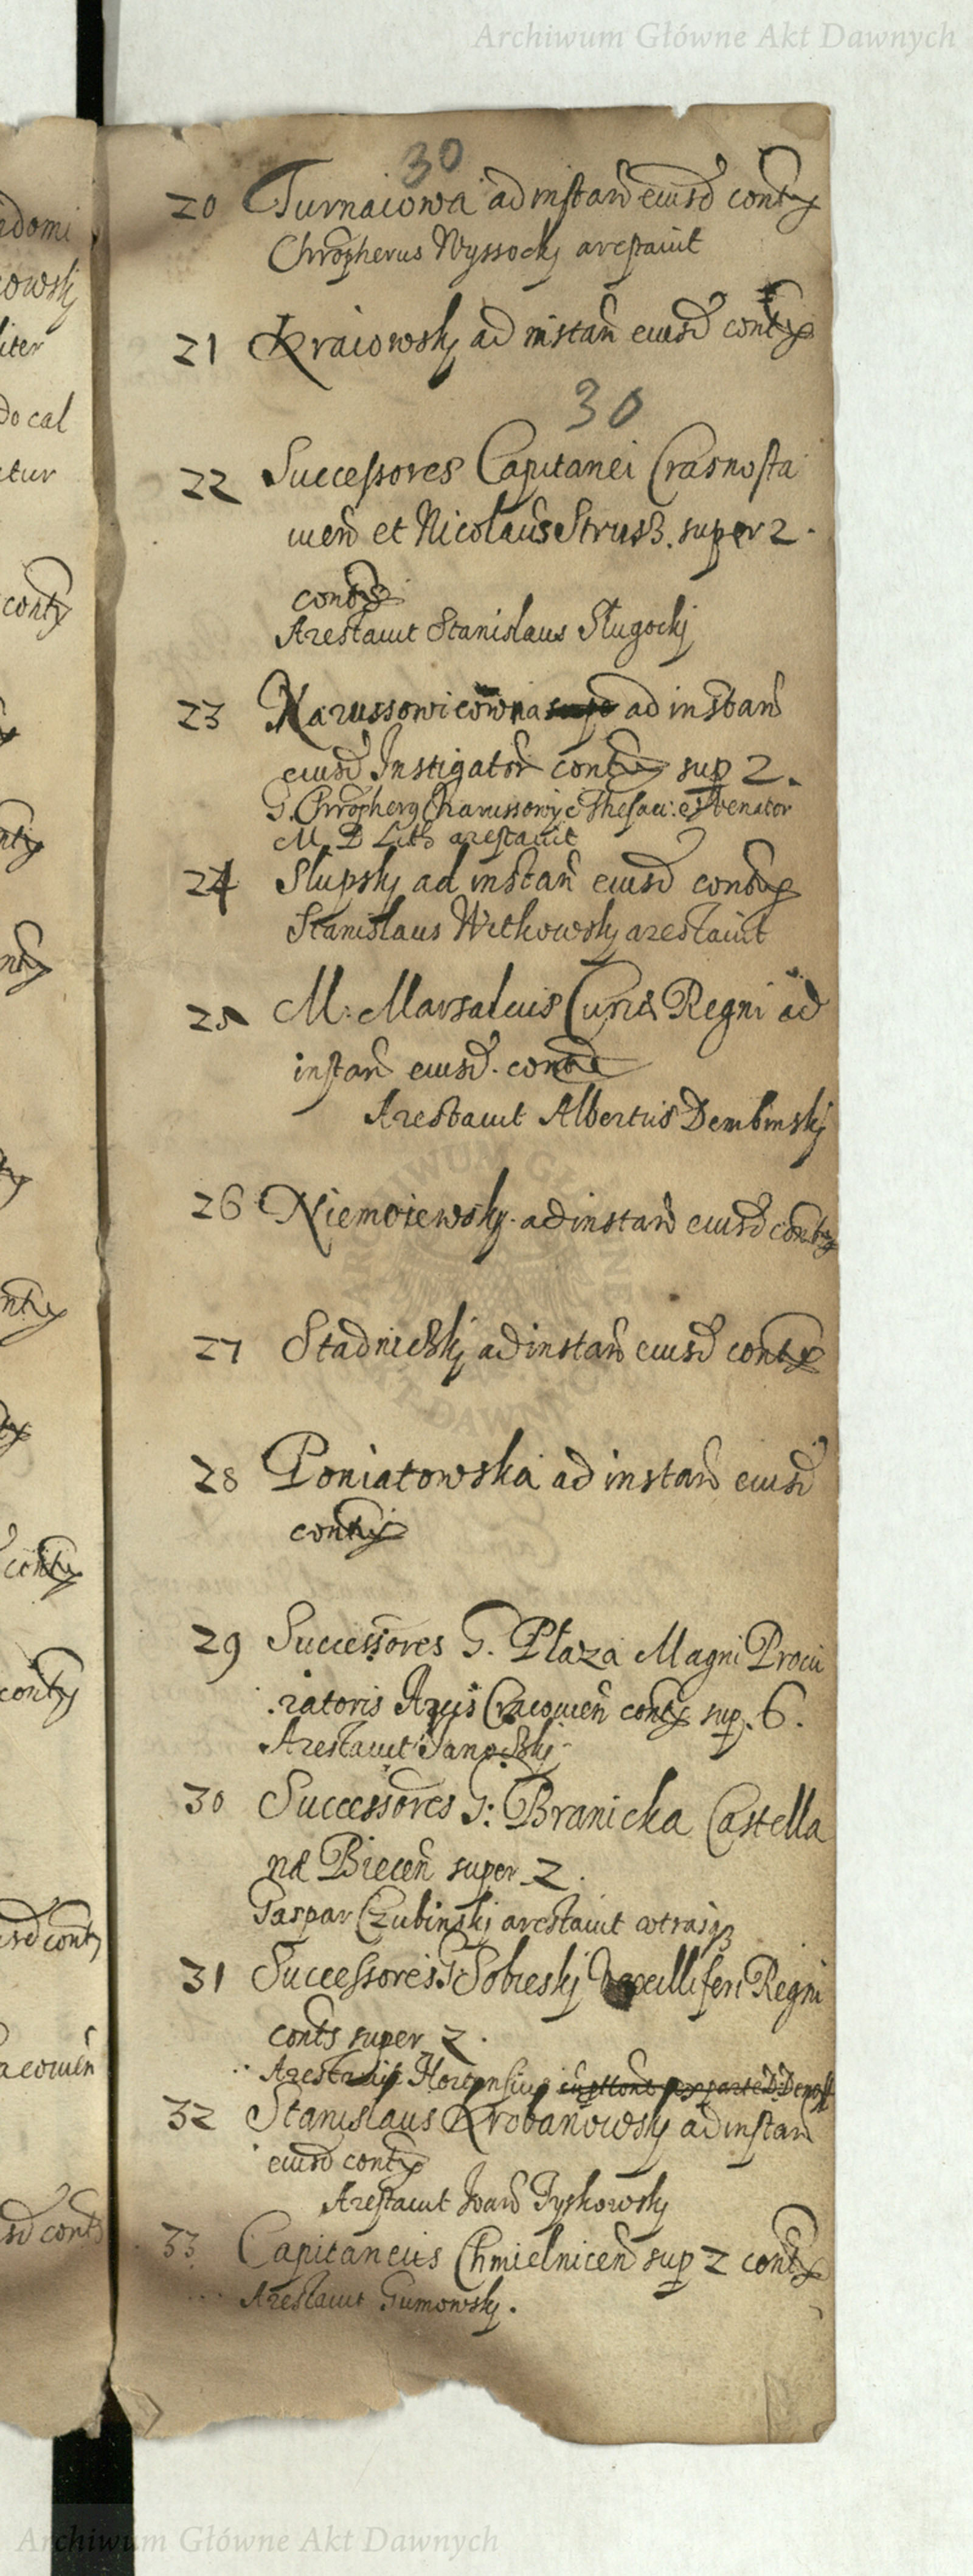 Archiwum Główne Akt Dawnych
30
20 Turnaiowa ad instan eiusd contx
Chropherus Wyssockj arestauit
21 Kraiowskj ad instan eiusd contx
30
22 Successores Capitanei Crasnosta
uien et Nicolaus Strusß. super 2.
contx
Arestauit Stanislaus Sługockj
23 Narussowicowna ad instan
eiusd Instigator contx sup 2.
G. Chropherg Thesau: et Venator
M. D Lith arestauit
24 Slupskj ad instan eiusd contx
Stanislaus Witkowskj arestauit
25 M: Marsalcus Curiæ Regni ad
instan eiusd. contx
Arestauit Albertus Dembinskj
26 Niemoiewskj. ad instan eiusd contx
27 Stadnickj ad instan eiusd contx
28 Poniatowska ad instan eiusd
contx
29 Successores G. Płaza Magni Procu
ratoris Arcis Cracouien contx sup. 6.
Arestauit
30 Successores G: Branicka Castella
næ Biecen super 2.
Gaspar Czubinskj arestauit
31 Successores G Sobieskj Vexilliferi Regni
conts super 2.
Arestauit Hortensius
32 Stanislaus Krobanowskj ad instan
eiusd contx
Arestauit Joan Tyskowskj
33 Capitaneus Chmielnicen sup 2 contx
Arestauit Gumowskj.
idomi
cowskj
liter
do cal
etur
contx
contx
eiusd contx
acouien
eiusd conts
Archiwum Główne Akt Dawnych